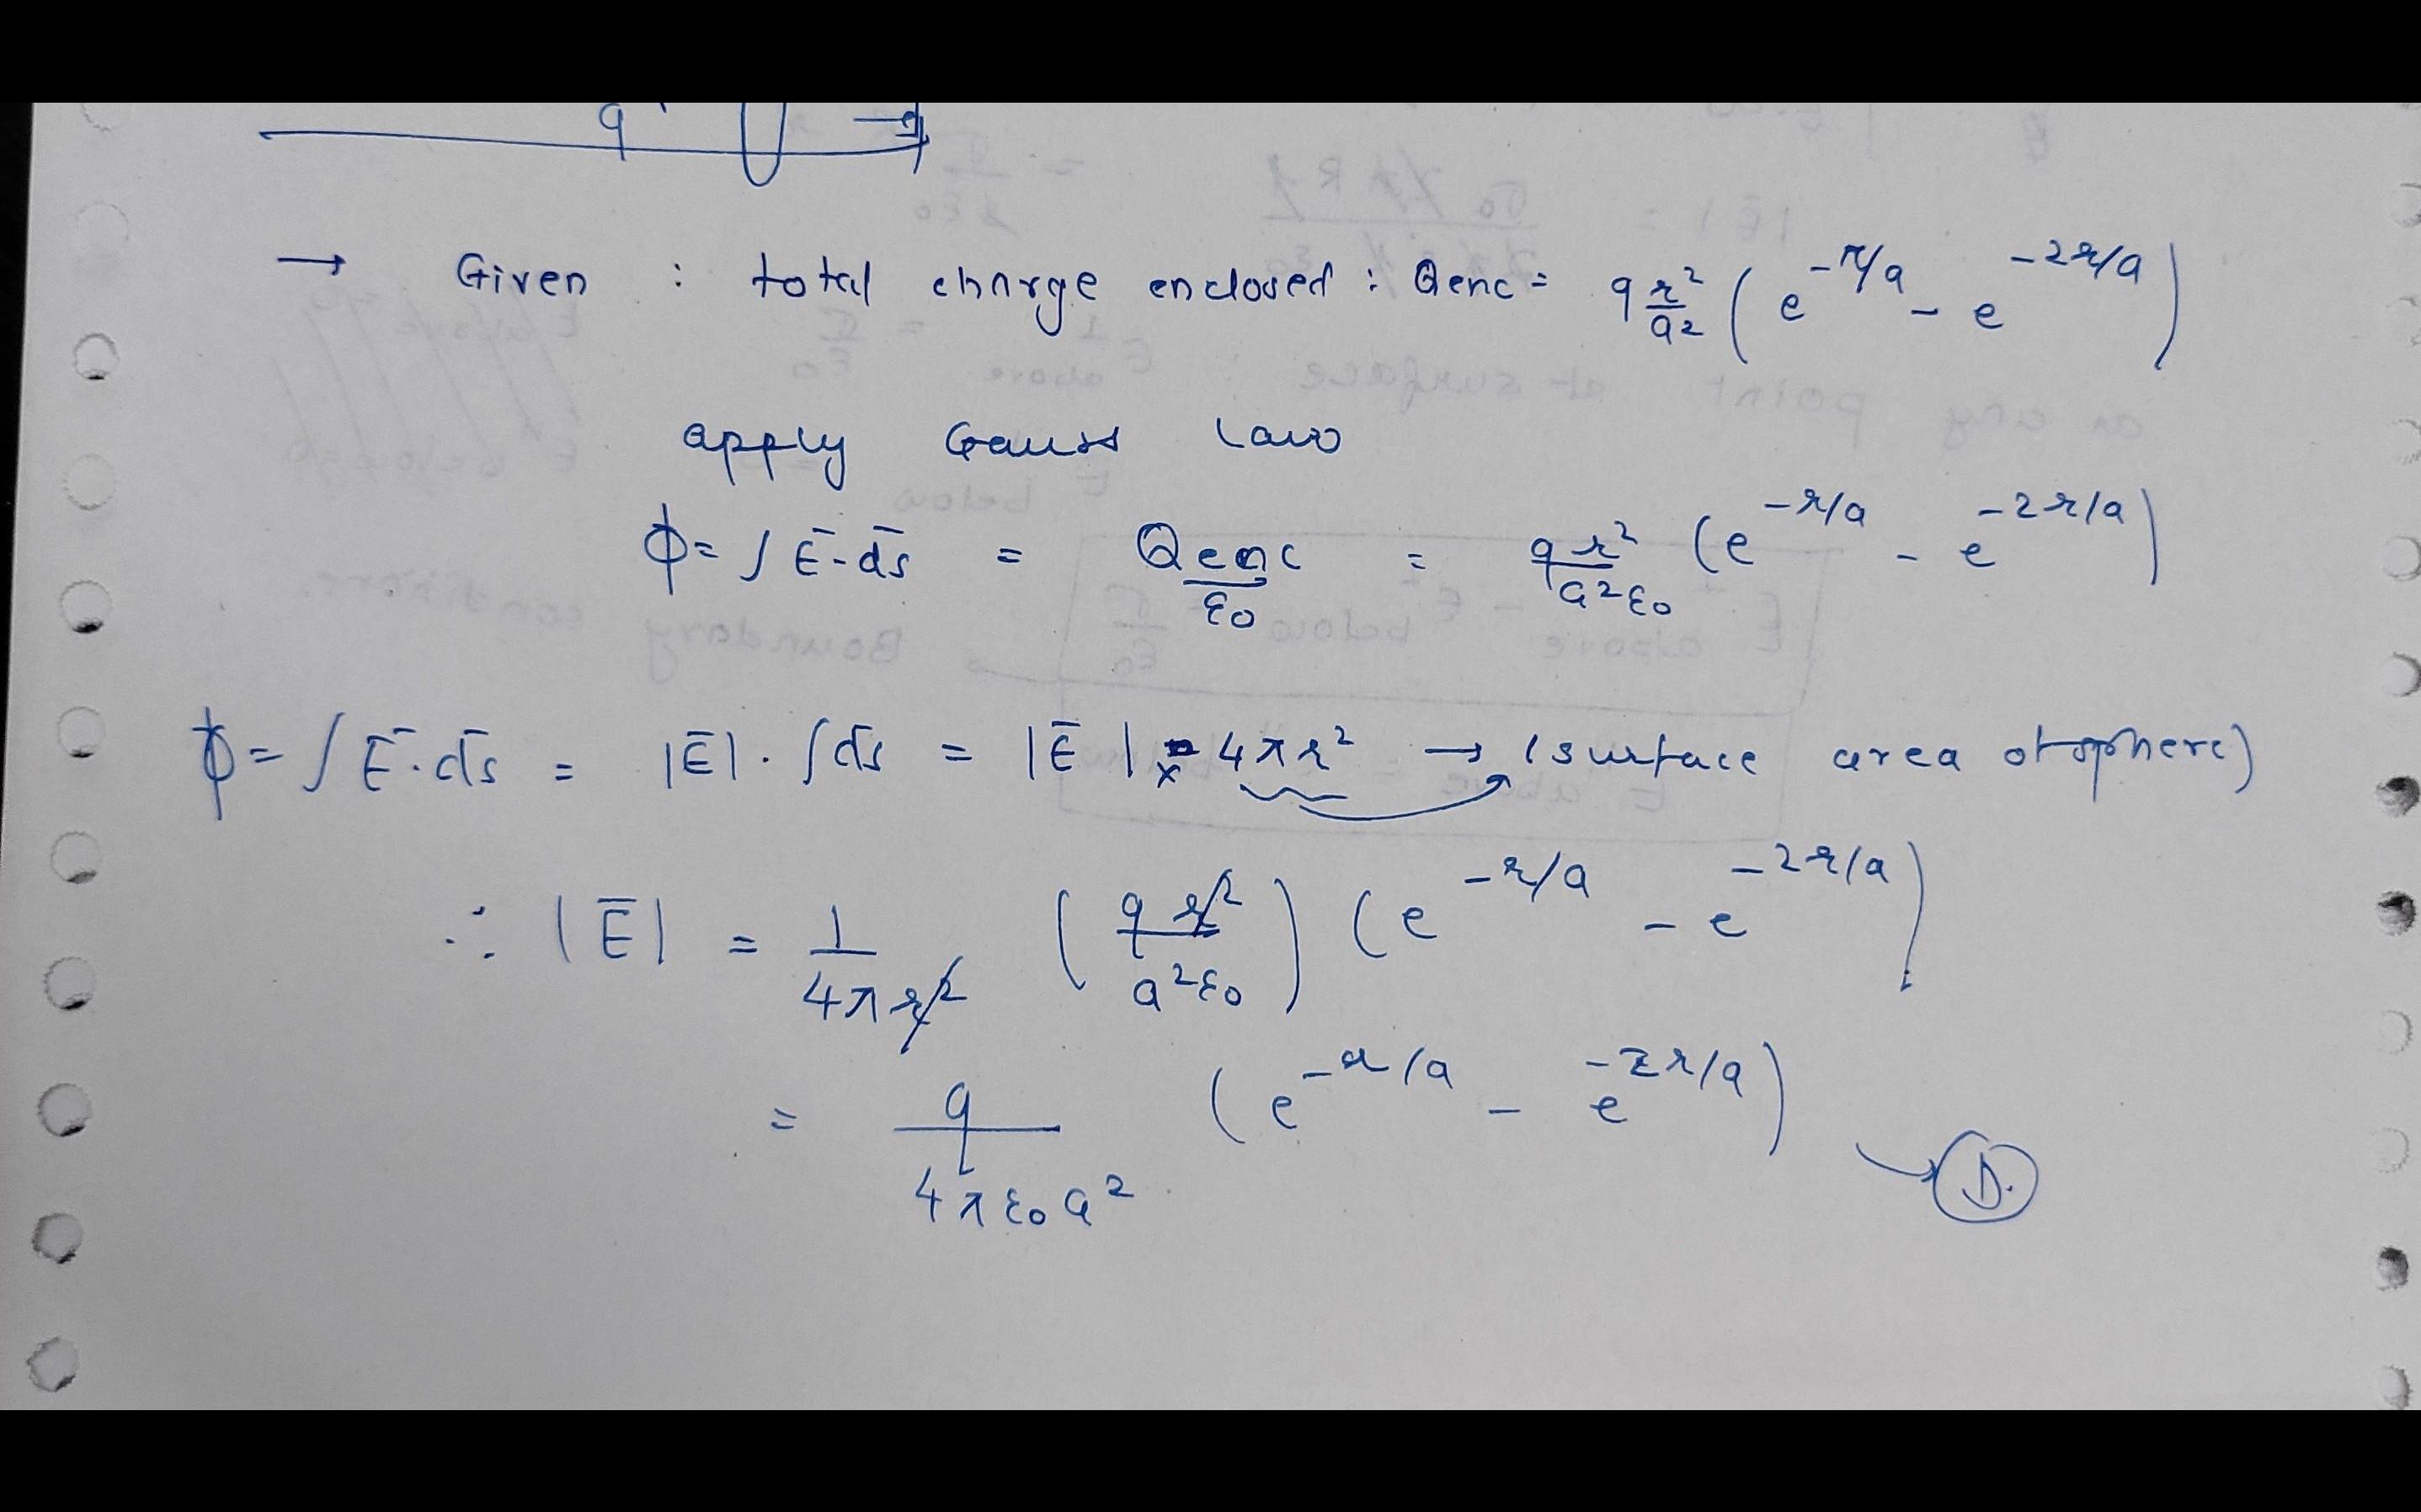 q
→ Given : total charge enclosed : Qenc = q r²/a² ( e^-r/a - e^-2r/a )
apply Gauss Law
ϕ = ∫ E̅ . d̅s = Qenc/ε0 = q r²/a²ε0 ( e^-r/a - e^-2r/a )
ϕ = ∫ E̅ . d̅s = |E̅| . ∫ d̅s = |E̅| × 4πr² → (surface area of sphere)
∴ |E̅| = 1/4πr² ( q r²/a²ε0 ) ( e^-r/a - e^-2r/a )
= q/4πε0a² ( e^-r/a - e^-2r/a ) → D.